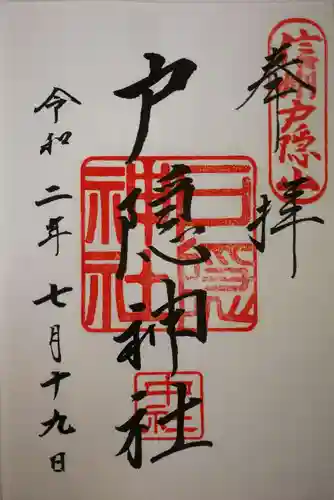 奉拝
信州戸隠山
戸隠神社
戸隠神社
中社
令和二年七月十九日